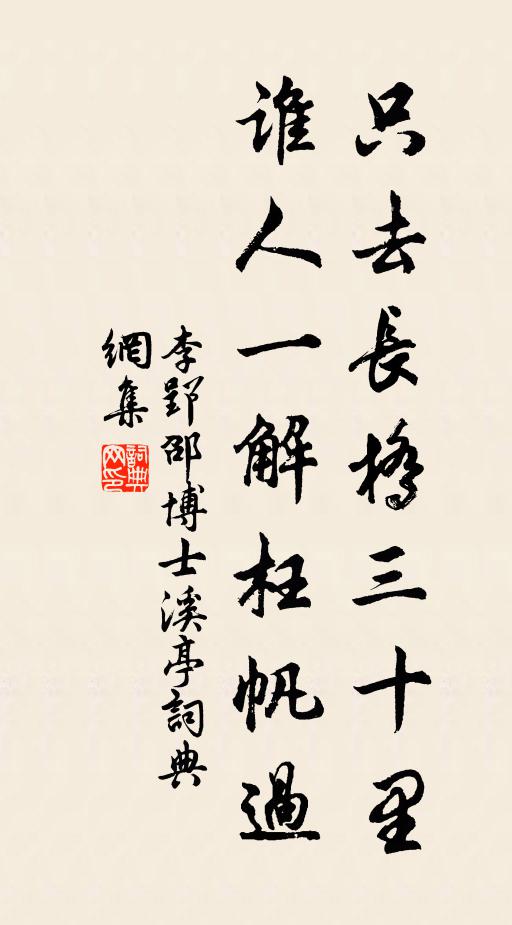 只去長橋三十里
誰人一解枉帆過
李郢邵博士溪亭詞典
網集
詞典
网印